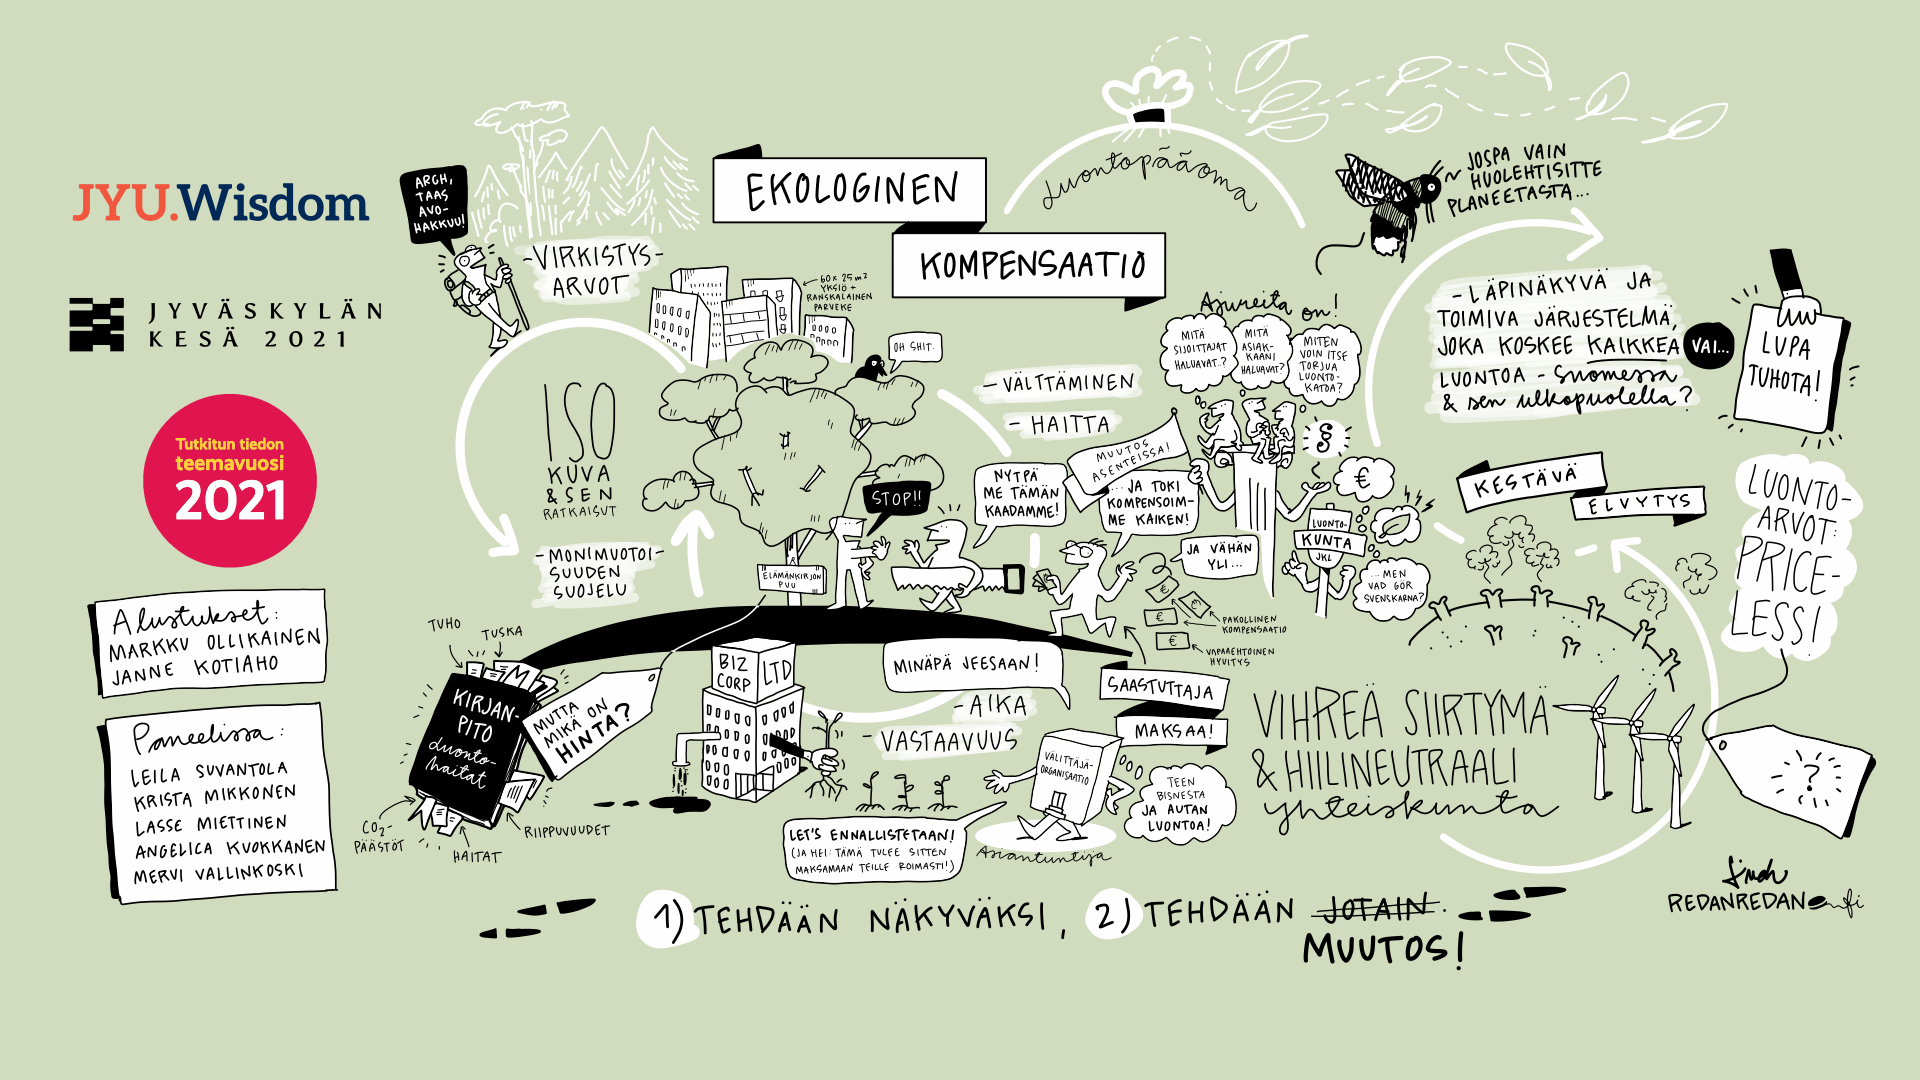 JYU.Wisdom
JYVÄSKYLÄN
KESÄ 2021
Tutkitun tiedon
teemavuosi
2021
Alustukset:
MARKKU OLLIKAINEN
JANNE KOTIAHO
Paneelissa:
LEILA SUVANTOLA
KRISTA MIKKONEN
LASSE MIETTINEN
ANGELICA KUOKKANEN
MERVI VALLINKOSKI
ARGH,
TAAS
AVO-
HAKKUU!
-VIRKISTYS-
ARVOT
EKOLOGINEN
KOMPENSAATIO
60 x 25 m²
YKSIÖ +
RANSKALAINEN
PARVEKE
OH SHIT.
ISO
KUVA
& SEN
RATKAISUT
-MONIMUOTOI-
SUUDEN
SUOJELU
ELÄMÄNKIRJON
PUU
STOP!!
NYTPÄ
ME TÄMÄN
KAADAMME!
-VÄLTTÄMINEN
- HAITTA
MUUTOS
ASENTEISSA!
...JA TOKI
KOMPENSOIM-
ME KAIKEN!
JA VÄHÄN
YLI...
PAKOLLINEN
KOMPENSAATIO
VAPAAEHTOINEN
HYVITYS
€
€
€
Luontopääoma
JOSPA VAIN
HUOLEHTISITTE
PLANEETASTA...
Ajureita on!
MITÄ
SIJOITTAJAT
HALUAVAT..?
MITÄ
ASIAK-
KAANI
HALUAVAT?
MITEN
VOIN ITSE
TORJUA
LUONTO-
KATOA?
§
€
LUONTO-
KUNTA
JKL
...MEN
VAD GÖR
SVENSKARNA?
- LÄPINÄKYVÄ JA
TOIMIVA JÄRJESTELMÄ,
JOKA KOSKEE KAIKKEA
LUONTOA - Suomessa
& sen ulkopuolella?
VAI...
LUPA
TUHOTA!
KESTÄVÄ
ELVYTYS
LUONTO-
ARVOT:
PRICE-
LESS!
?
TUHO
TUSKA
KIRJAN-
PITO
Luonto-
haitat
CO₂-
PÄÄSTÖT
HAITAT
RIIPPUVUUDET
MUTTA
MIKÄ ON
HINTA?
BIZ
CORP
LTD
MINÄPÄ JEESAAN!
-AIKA
- VASTAAVUUS
LET'S ENNALLISTETAAN!
(JA HEI: TÄMÄ TULEE SITTEN
MAKSAMAAN TEILLE ROIMASTI!)
VÄLITTÄJÄ-
ORGANISAATIO
Asiantuntija
SAASTUTTAJA
MAKSAA!
TEEN
BISNESTA
JA AUTAN
LUONTOA!
VIHREÄ SIIRTYMÄ
& HIILINEUTRAALI
yhteiskunta
1) TEHDÄÄN NÄKYVÄKSI, 2) TEHDÄÄN JOTAIN.
MUUTOS!
REDANREDAN